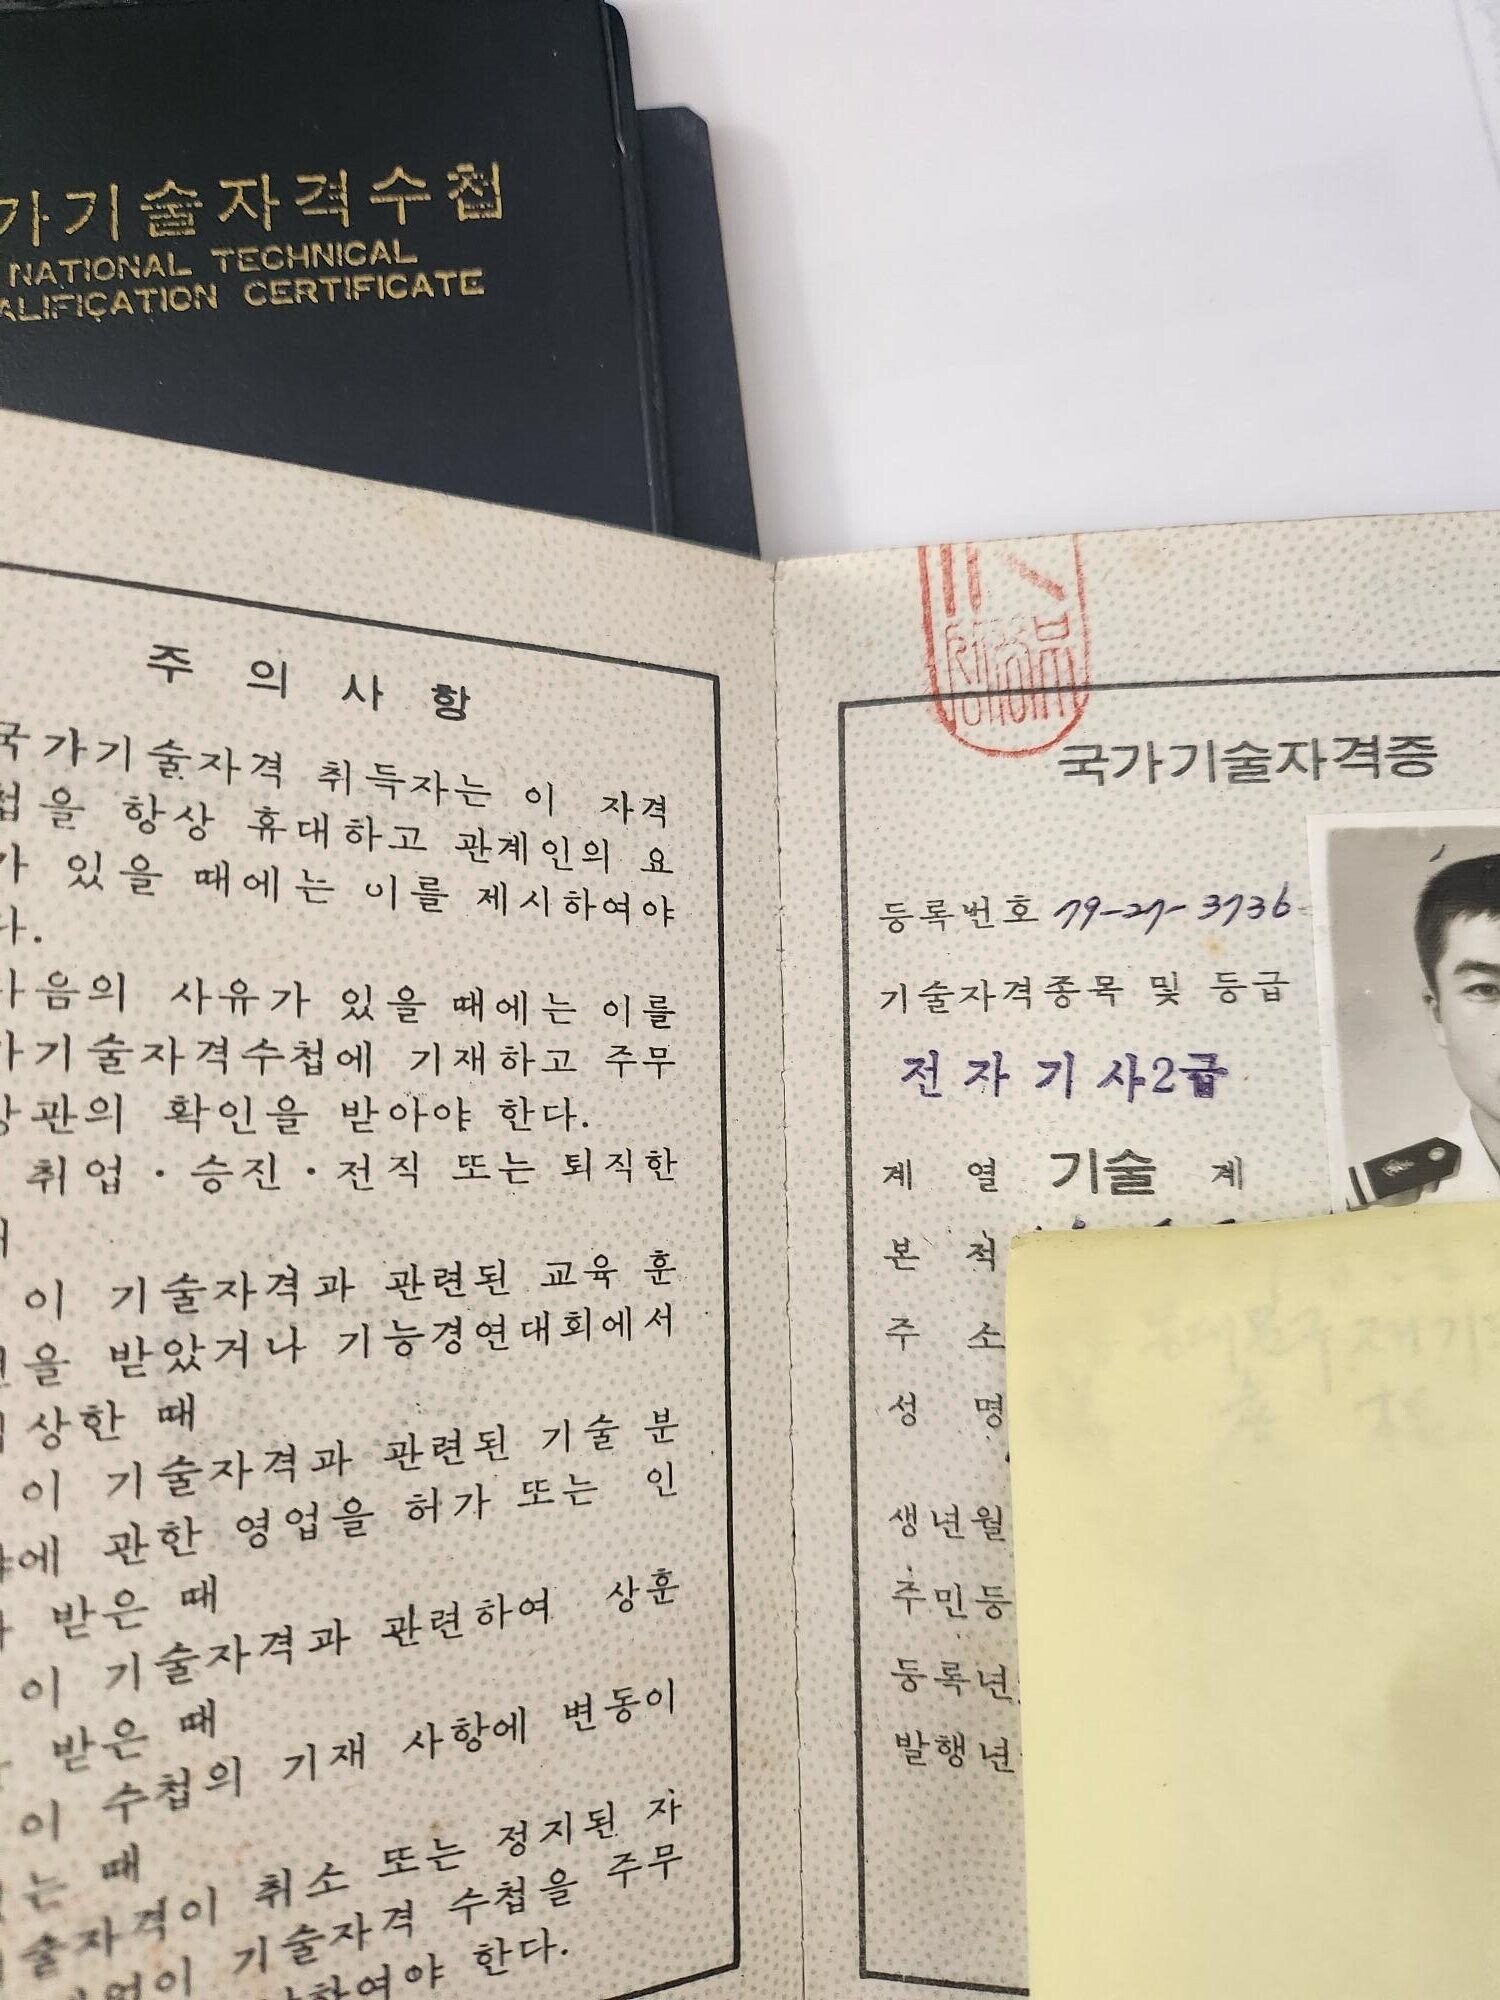 가기술자격수첩
NATIONAL TECHNICAL
ALIFICATION CERTIFICATE
주의사항
국가기술자격 취득자는 이 자격
첩을 항상 휴대하고 관계인의 요
가 있을 때에는 이를 제시하여야
다.
다음의 사유가 있을 때에는 이를
가기술자격수첩에 기재하고 주무
장관의 확인을 받아야 한다.
취업·승진·전직 또는 퇴직한
이 기술자격과 관련된 교육 훈
련을 받았거나 기능경연대회에서
입상한 때
이 기술자격과 관련된 기술 분
야에 관한 영업을 허가 또는 인
가 받은 때
이 기술자격과 관련하여 상훈
받은 때
이 수첩의 기재 사항에 변동이
있는 때
술자격이 취소 또는 정지된 자
없이 기술자격 수첩을 주무
하여야 한다.
국가기술자격증
등록번호 79-27-3736
기술자격종목 및 등급
전자기사2급
계열 기술 계
본적
주소
성명
생년월
주민등
등록년
발행년